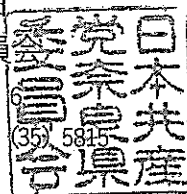 日本共産
党奈良県
委員会
6
(35) 5815